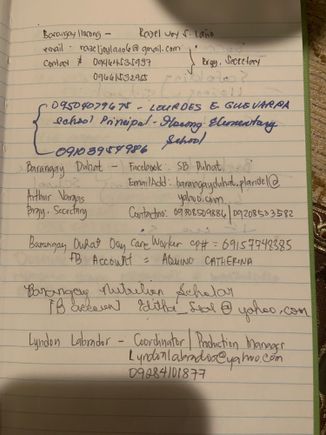 Barangay Ilarong - Razel Joy S. Laño
email : razeljoylano6@gmail.com
Contact # 09464535937 Brgy. Secretary
09661532965
09504079675 - LOURDES E GUEVARRA
School Principal - Ilarong Elementary
School
09103954986
Barangay Duhat - Facebook: SB Duhat
Email Add: barangayduhat.plaridel@
Arthur Vargas yahoo.com
Brgy. Secretary Contact no: 09308509886 / 09208523582
Barangay Duhat Day Care Worker cp# = 69157948385
FB Account = AQUINO CATHERINA
Barangay Nutrition Scholar
FB account Editha @yahoo.com
Lyndon Labrador - Coordinator / Production Manager
Lyndonlabrador@yahoo.com
09284101877